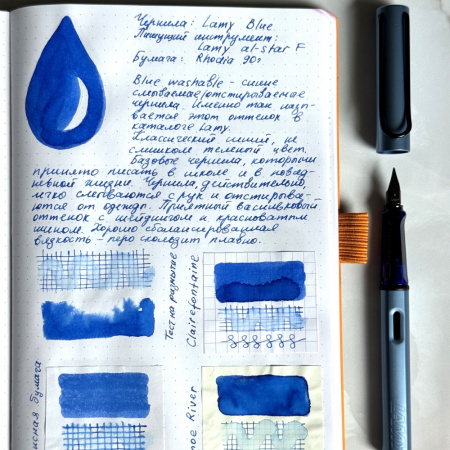 Чернила: Lamy Blue
Пишущий инструмент:
Lamy al-star F
Бумага: Rhodia 90г
Blue washable - синие
смываемые/отстирываемые
чернила. Именно так назы-
вается этот оттенок в
каталоге Lamy.
Классический синий, не
слишком темный цвет.
Базовые чернила, которыми
принято писать в школе и в повсед-
невной жизни. Чернила, действительно,
легко смываются с рук и отстирыва-
ются от одежды. Приятный васильковый
оттенок с шейдингом и красноватым
шином. Хорошо сбалансированная
вязкость - перо скользит плавно.
Тест на размытие
Clairefontaine
бумага
River